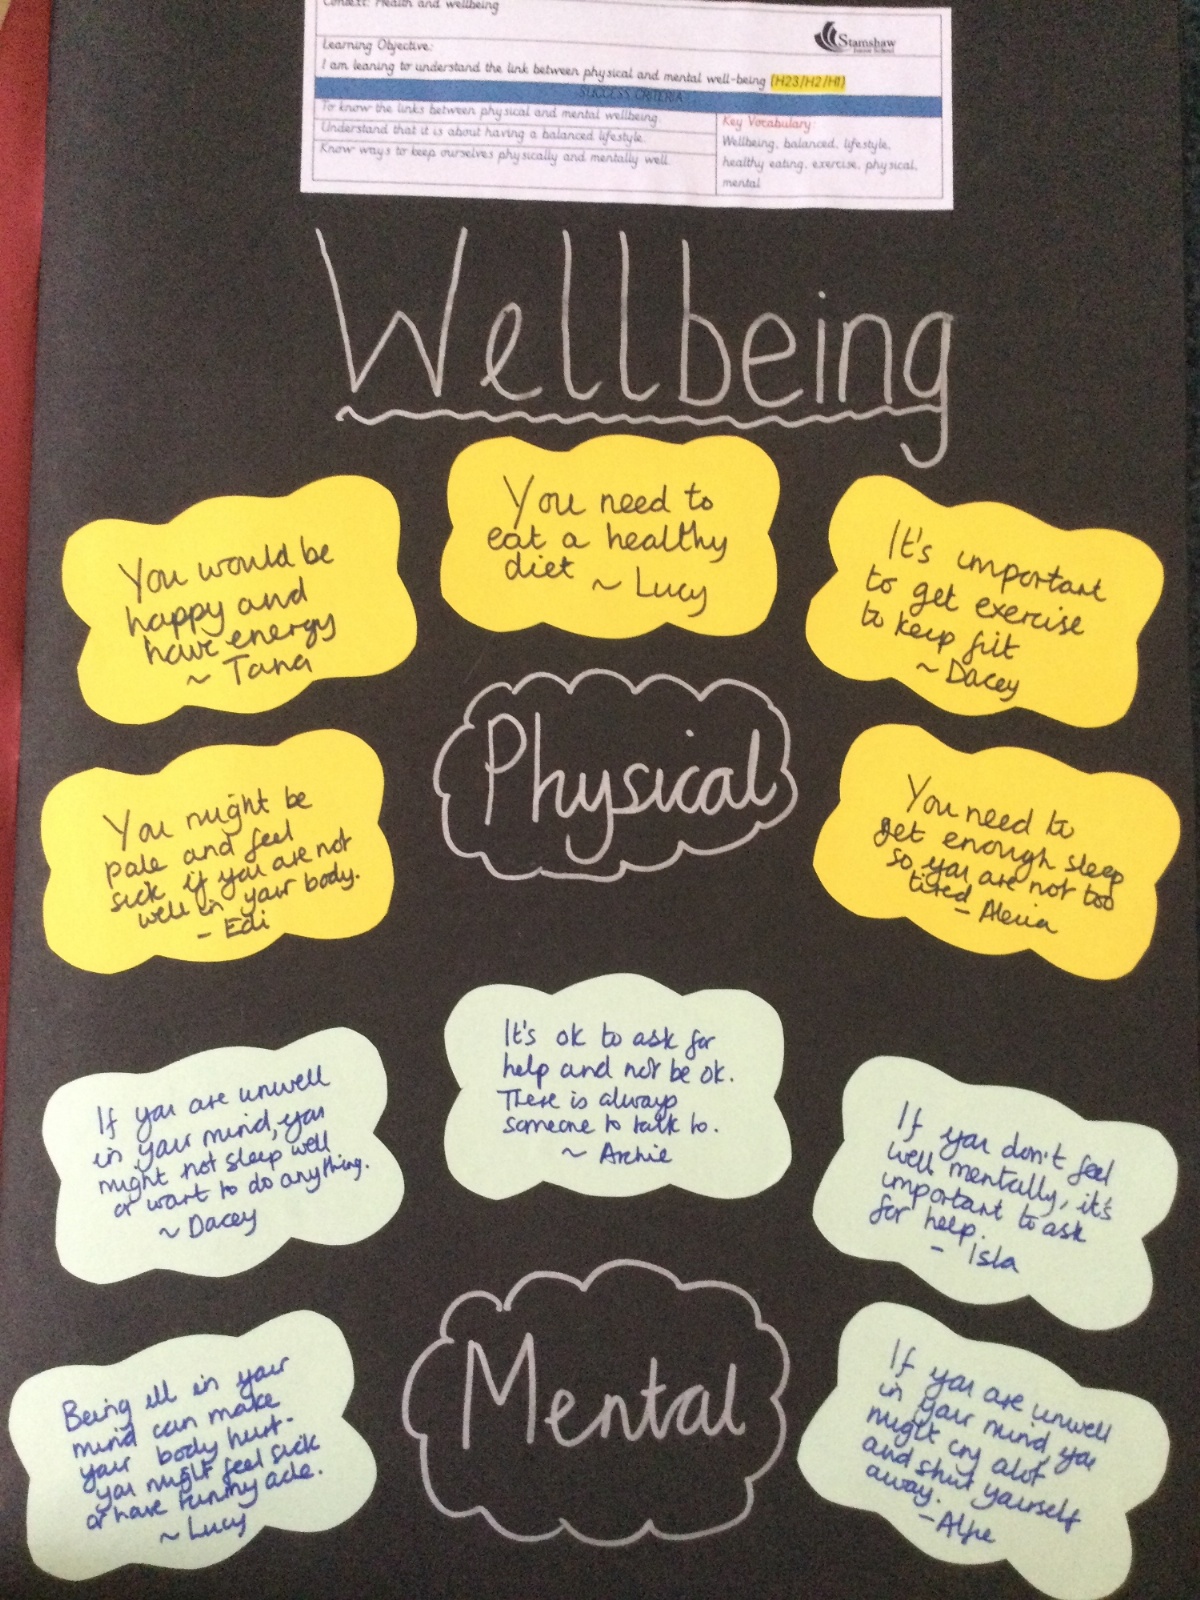 Context: Health and wellbeing
Stamshaw
Junior School
Learning Objective:
I am leaning to understand the link between physical and mental well-being (H23/H2/H1)
SUCCESS CRITERIA
To know the links between physical and mental wellbeing.
Understand that it is about having a balanced lifestyle.
Know ways to keep ourselves physically and mentally well.
Key Vocabulary:
Wellbeing, balanced, lifestyle,
healthy eating, exercise, physical,
mental
Wellbeing
You would be
happy and
have energy
~ Tana
You need to
eat a healthy
diet ~ Lucy
It's important
to get exercise
to keep fit
~ Dacey
Physical
You might be
pale and feel
sick if you are not
well in your body.
- Edi
You need to
get enough sleep
so you are not too
tired - Alexia
If you are unwell
in your mind, you
might not sleep well
or want to do anything.
~ Dacey
It's ok to ask for
help and not be ok.
There is always
someone to talk to.
~ Archie
If you don't feel
well mentally, it's
important to ask
for help.
- Isla
Mental
Being ill in your
mind can make
your body hurt.
you might feel sick
or have tummy ache.
~ Lucy
If you are unwell
in your mind, you
might cry alot
and shut yourself
away.
- Alfie